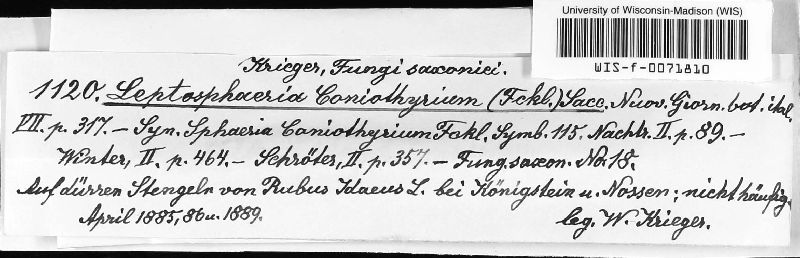 University of Wisconsin-Madison (WIS)
WIS-f-0071810
Krieger, Fungi saxonici.
1120. Leptosphaeria Coniothyrium (Fckl.) Sacc. Nuov. Giorn. bot. ital.
VII. p. 317. — Syn. Sphaeria Coniothyrium Fckl. Symb. 115. Nachtr. II. p. 89. —
Winter, II. p. 464. — Schröter, II. p. 357. — Fung. saxon. No. 18.
Auf dürren Stengeln von Rubus Idaeus L. bei Königstein u. Nossen; nicht häufig.
April 1885, 86 u. 1889.
leg. W. Krieger.